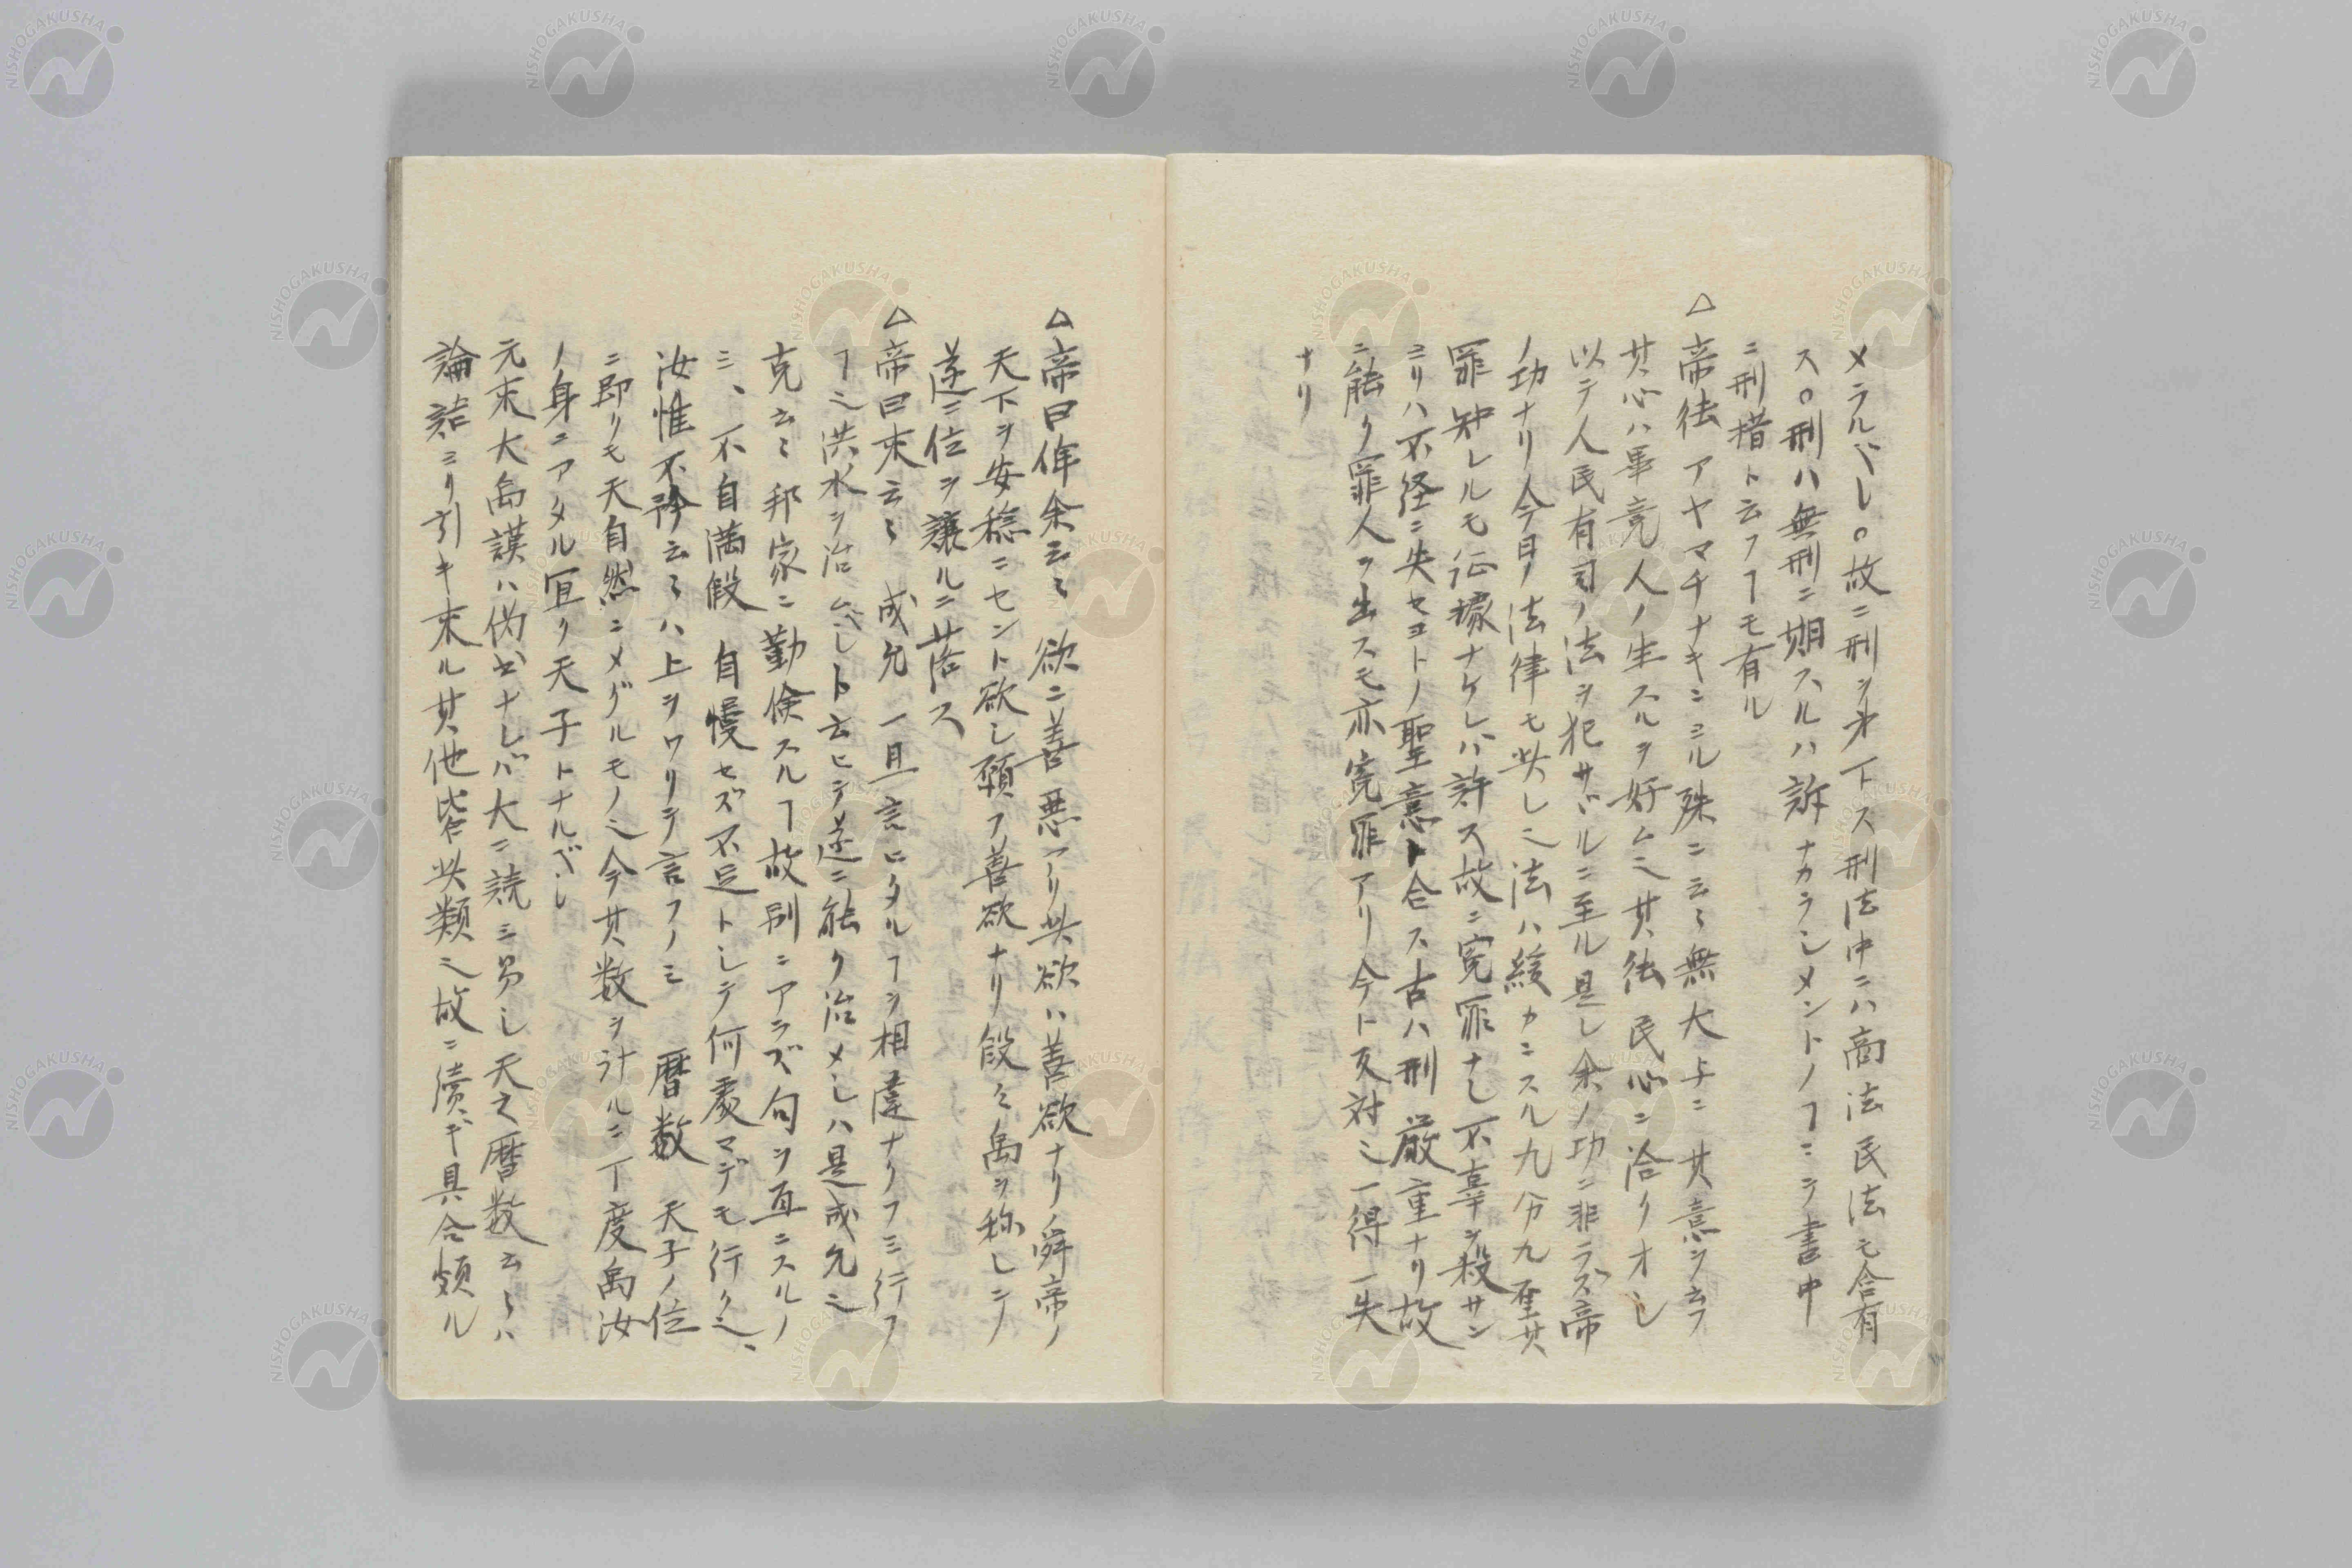 メラルベし。故ニ刑ヲ弟下ス刑法中ニハ商法民法モ含有
ス。刑ハ無刑ニ期スルハ訴ナカラシメントノヿニテ書中
ニ刑措ト云フヿモ有ル
△帝徳アヤマチナキニヨル殊ニ云〻無大ト云其意ヲ云フ
其心ハ畢竟人ノ生スルヲ好ム也其徳民心ニ洽リオし
以テ人民有司ノ法ヲ犯サヾルニ至ル是し余ノ功ニ非ラズ帝
ノ功ナリ今日ノ法律モ此し也法ハ緩カニスル九分九厘其
罪知レルモ証據ナケレバ許ス故ニ寃罪ナし不辜ヲ殺サン
ヨリハ不経ニ失セヨトノ聖意ト合ス古ハ刑厳重ナリ故
ニ能ク罪人ヲ出スモ亦寃罪アリ今ト反対也一得一失
ナリ
△帝曰俾余云〻 欲ニ善悪アリ此欲ハ善欲ナリ舜帝ノ
天下ヲ安穏ニセント欲し願フ善欲ナリ段〻禹ヲ称しテ
遂ニ位ヲ譲ルニ落ス
△帝曰来云〻 成允 一旦言ヒタルヿヲ相違ナクフミ行フ
ヿ也洪水ヲ治ムベしト云ヒテ遂ニ能ク治メしハ是成允也
克云〻邦家ニ勤倹スルヿ故別ニアラズ句ヲ互ニスルノ
ミ、不自満假 自慢セズ不足トしテ何處マデモ行ク也、
汝惟不矜云〻ハ上ヲワリテ言フノミ 暦数 天子ノ位
ニ即クモ天自然ニメグルモノ也今其数ヲ計ルニ丁度禹汝
ノ身ニアタル冝ク天子トナルベし
元来大禹謨ハ偽書ナレバ大ニ読ミ易し天之暦数云〻ハ
論語ヨリ引キ来ル其他皆此類也故ニ続ギ具合頗ル